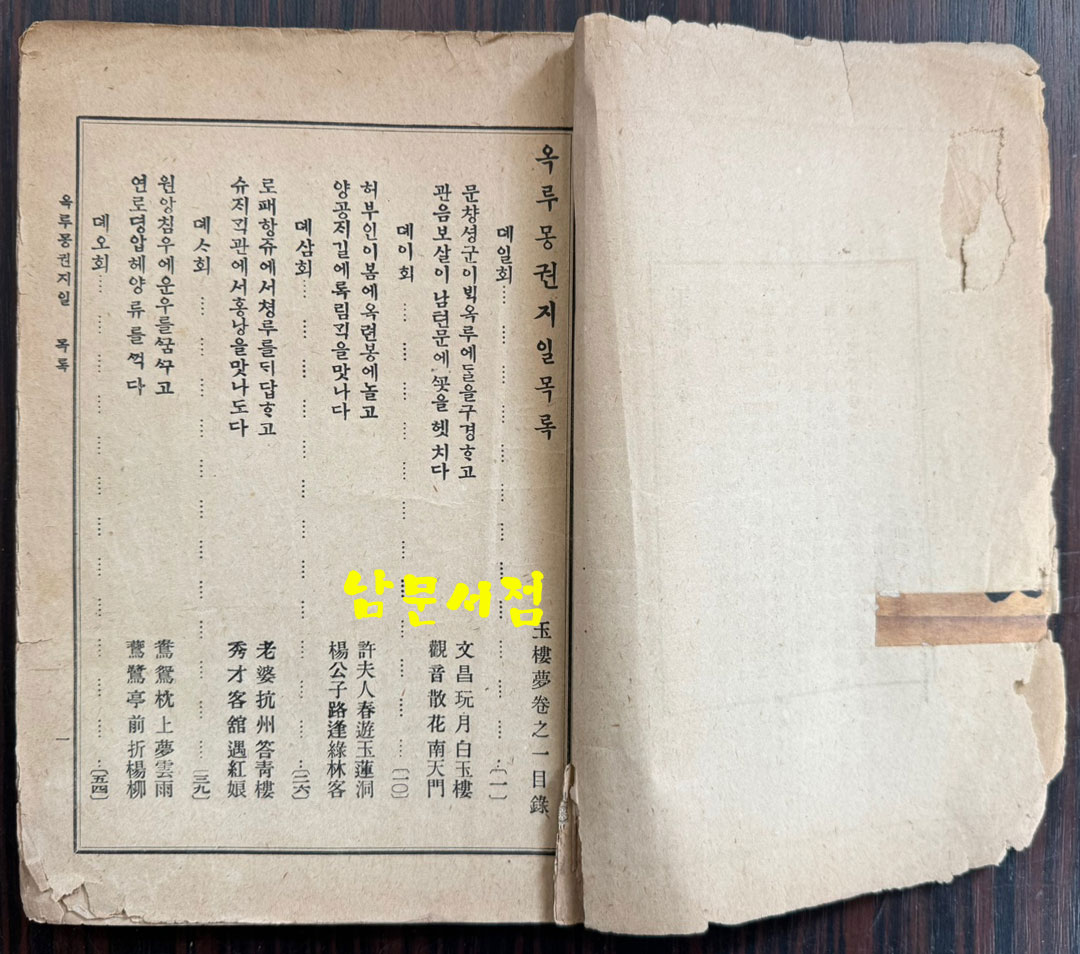 옥루몽권지일목록 玉樓夢卷之一目錄
뎨일회 〔一〕
문챵셩군이ᄇᆡᆨ옥루에ᄃᆞᆯ을구경ᄒᆞ고 文昌玩月白玉樓
관음보살이남텬문에ᄭᅩᆺ을헷치다 觀音散花南天門
뎨이회 〔一〇〕
허부인이봄에옥련봉에놀고 許夫人春遊玉蓮洞
양공ᄌᆞ길에록림ᄀᆡᆨ을맛나다 楊公子路逢綠林客
뎨삼회 〔二六〕
로패항쥬에서쳥루를ᄃᆡ답ᄒᆞ고 老婆抗州答靑樓
슈ᄌᆡᄀᆡᆨ관에서홍낭을맛나도다 秀才客舘遇紅娘
뎨ᄉᆞ회 〔三九〕
원앙침우에운우를ᄭᅮᆷᄭᅮ고 鴦鴛枕上夢雲雨
연로뎡압헤양류를ᄭᅥᆨ다 鷺亭前折楊柳
뎨오회 〔五四〕
옥루몽권지일 목록 一
남문서점